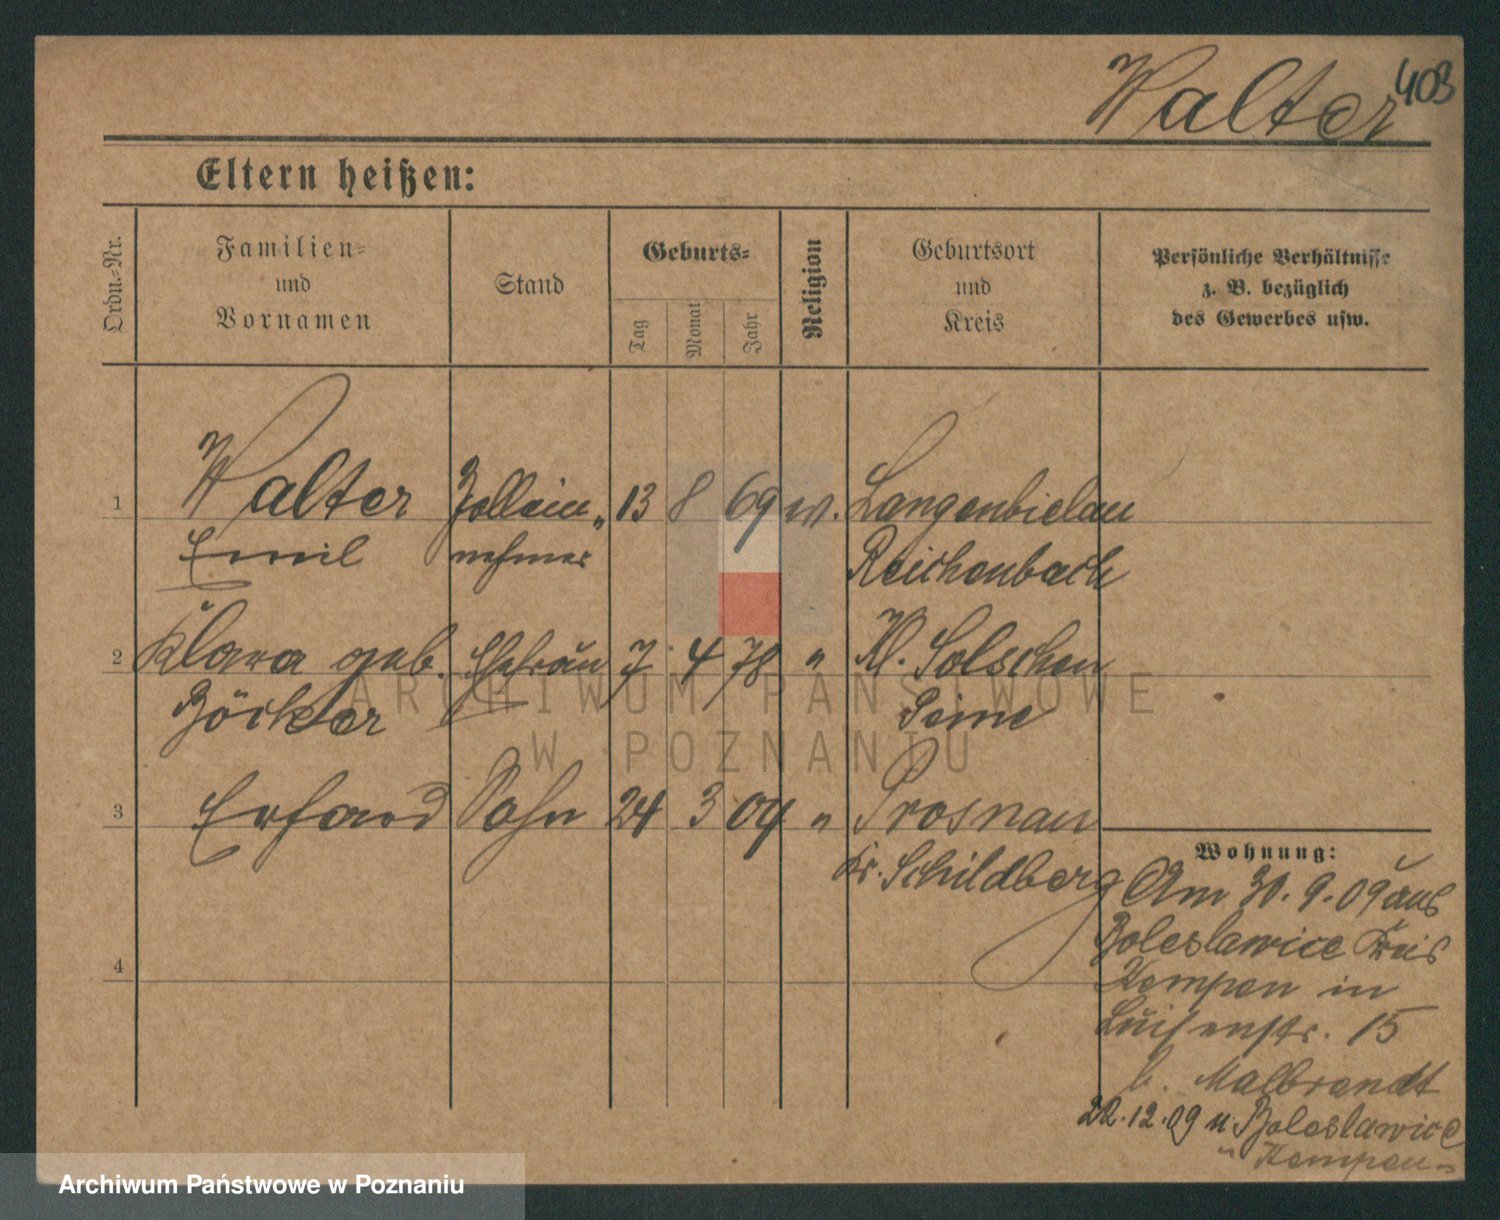 Walter 403
Eltern heißen:
Ordn.=Nr.
Familien=
und
Vornamen
Stand
Geburts=
Tag
Monat
Jahr
Religion
Geburtsort
und
Kreis
Persönliche Verhältnisse
z. B. bezüglich
des Gewerbes usw.
1 Walter Zollein„ 13 8 69 ev. Langenbielau
Emil nehmer Reichenbach
2 Klara geb. Ehefrau 7 4 78 „ Kl. Solschen
Böcker Peine
3 Erhard Sohn 24 3 04 „ Prosnau
Kr. Schildberg
4
Wohnung:
Am 30.9.09 aus
Boleslawice Kreis
Kempen in
Luisenstr. 15
b. Malbrandt
22.12.09 n. Boleslawice
Kempen
ARCHIWUM PAŃSTWOWE
W POZNANIU
Archiwum Państwowe w Poznaniu